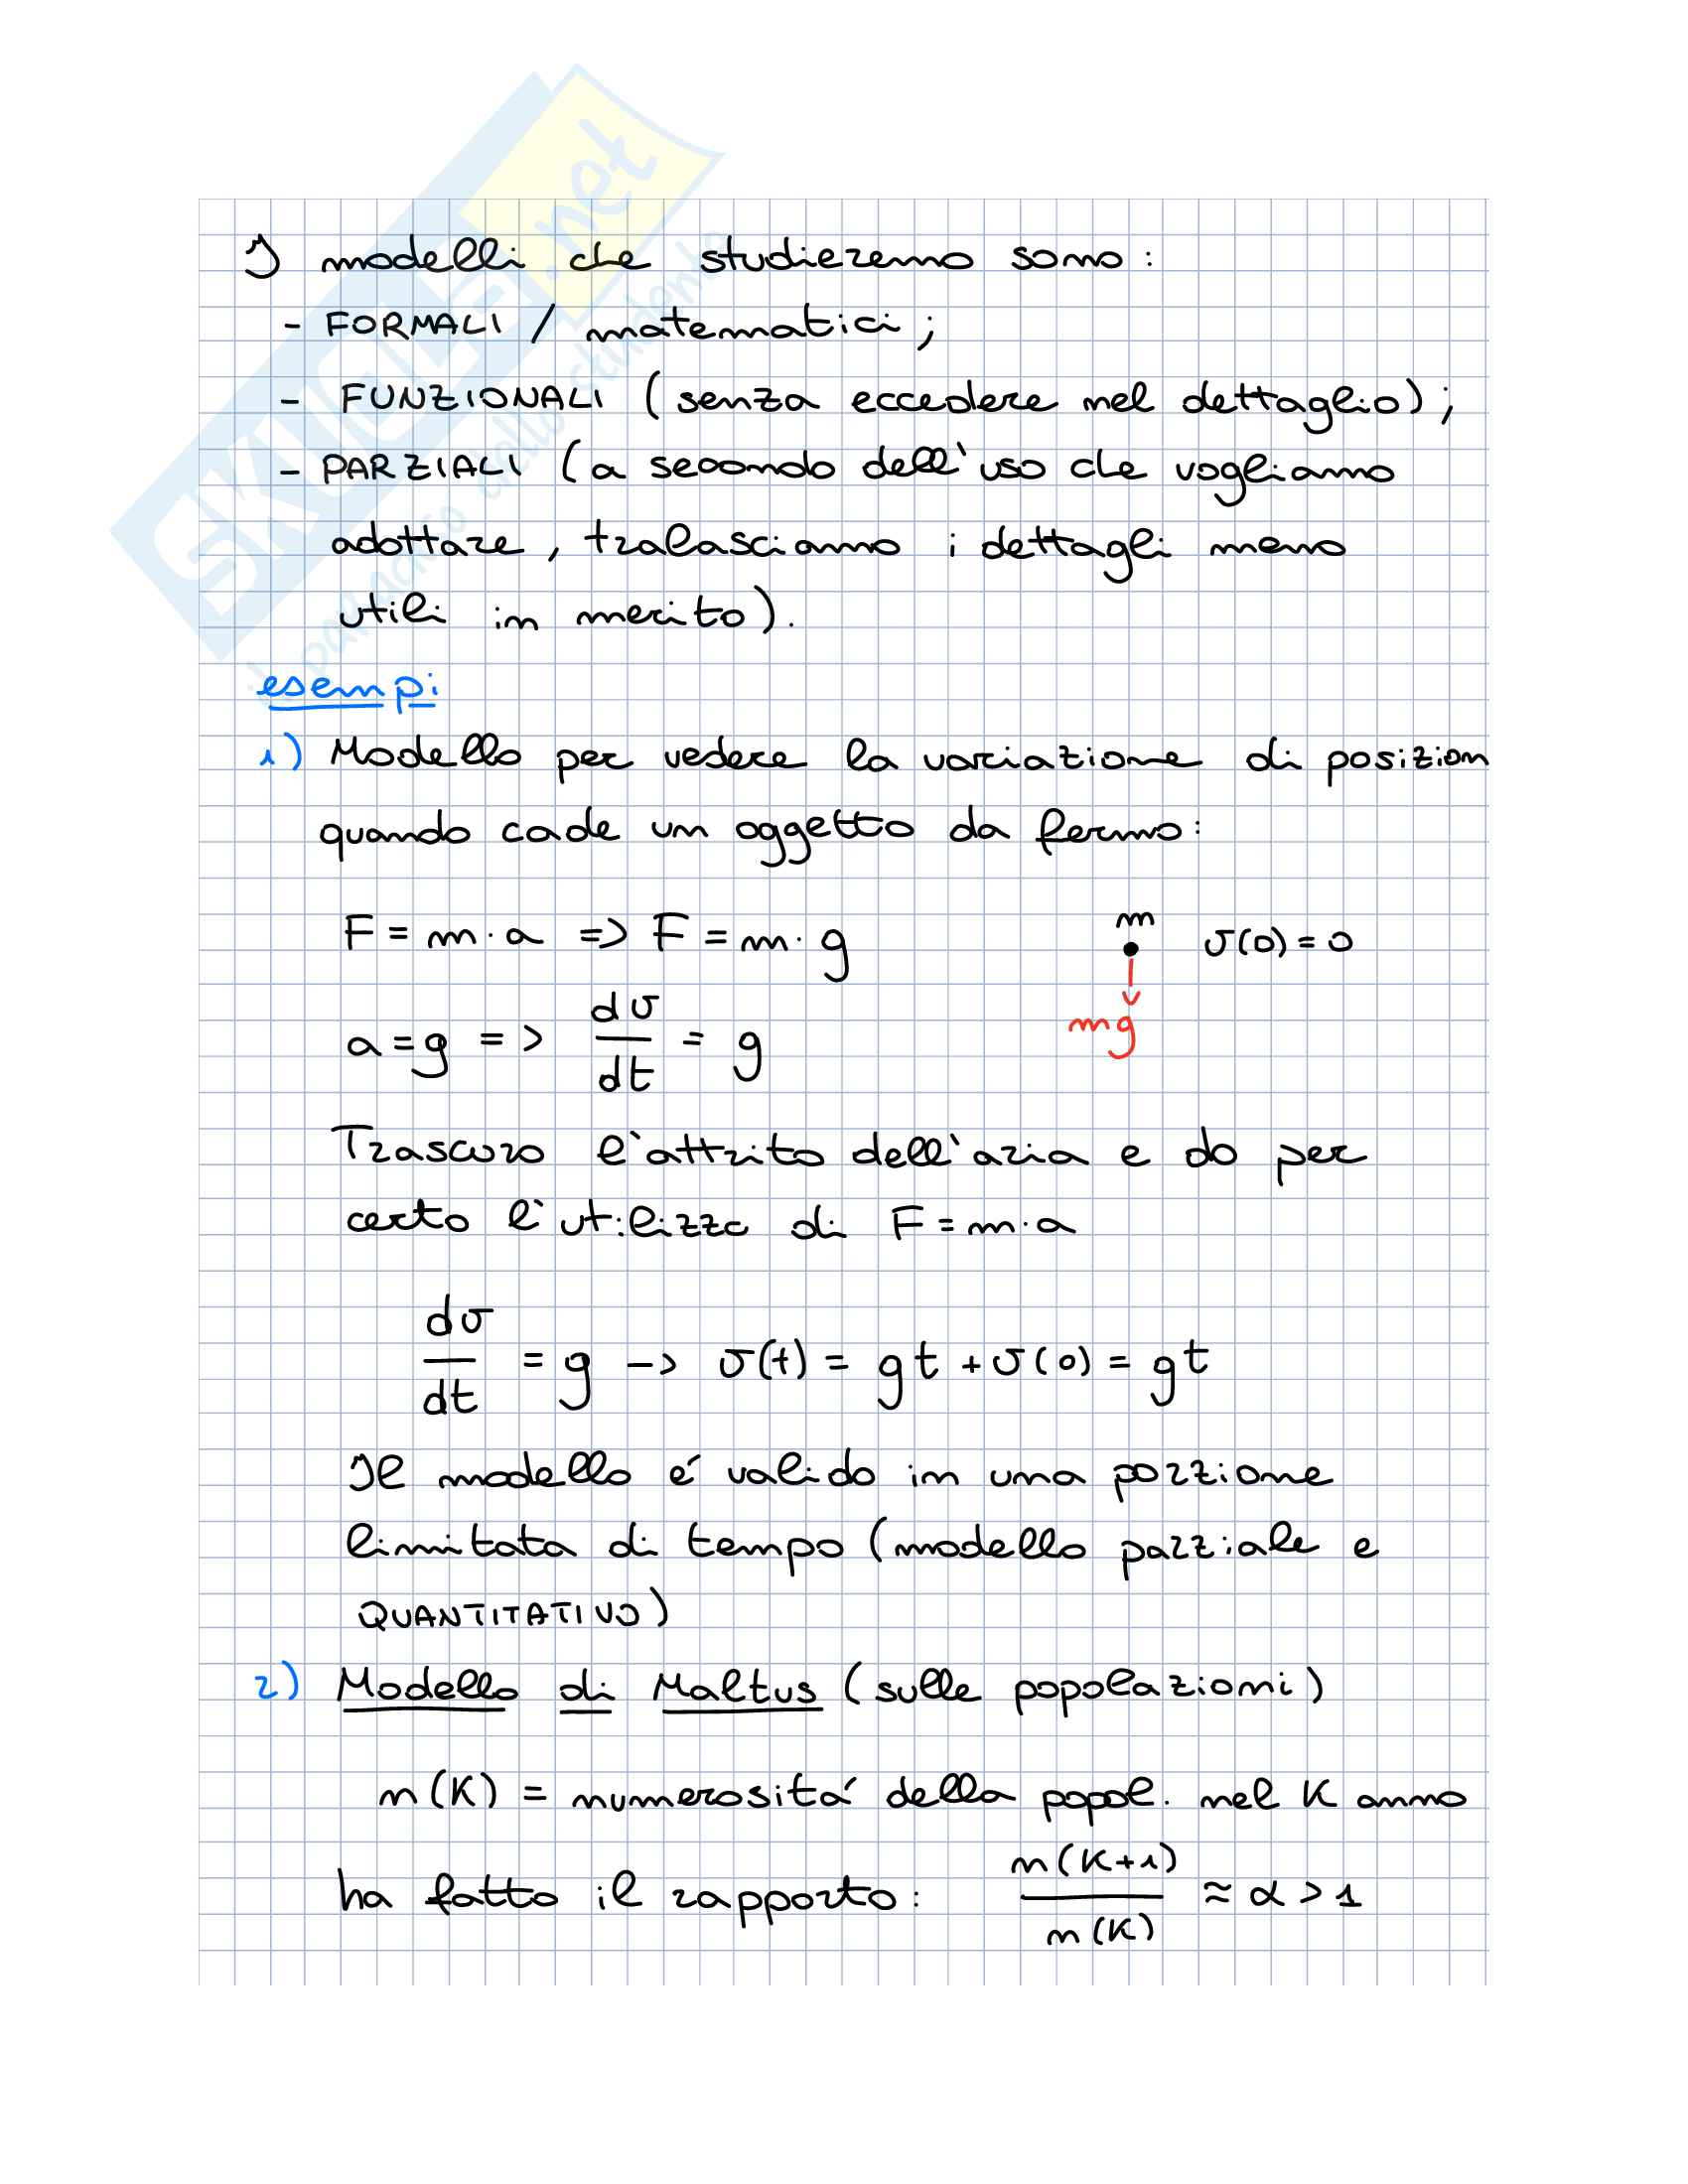 I modelli che studieremo sono:
- FORMALI / matematici;
- FUNZIONALI (senza eccedere nel dettaglio);
- PARZIALI (a secondo dell'uso che vogliamo
adottare, tralasciamo i dettagli meno
utili in merito).
esempi
1) Modello per vedere la variazione di posizion
quando cade un oggetto da fermo:
F = m · a => F = m · g
m v(0) = 0
mg
a = g => dv/dt = g
Trascuro l'attrito dell'aria e do per
certo l'utilizzo di F = m · a
dv/dt = g -> v(t) = gt + v(0) = gt
Il modello é valido in una porzione
limitata di tempo (modello parziale e
QUANTITATIVO)
2) Modello di Maltus (sulle popolazioni)
n(K) = numerositá della popol. nel K anno
ha fatto il rapporto: n(K+1)/n(K) ≈ α > 1
SKUOLA.net
il paradiso dello studente